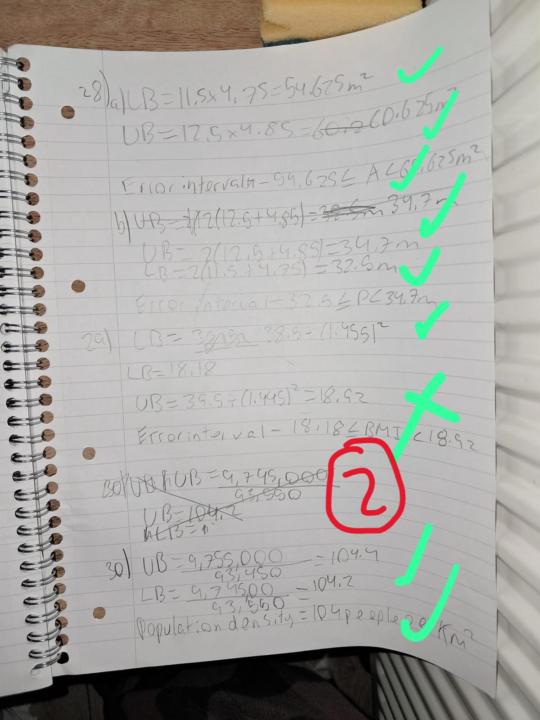 28)a) LB = 11.5 x 4.75 = 54.625m²
UB = 12.5 x 4.85 = 60.625m²
Error interval - 54.625 ≤ A < 60.625m²
b) UB = 2(12.5+4.85) = 34.7m
UB = 2(12.5+4.85) = 34.7m
LB = 2(11.5+4.75) = 32.5m
Error interval - 32.5 ≤ P < 34.7m
29) LB = 38.5 ÷ (1.455)²
LB = 18.18
UB = 39.5 ÷ (1.445)² = 18.92
Error interval - 18.18 ≤ BMI < 18.92
30) UB = 9,745,000
93,550
2
UB = 104.2
LB =
30) UB = 9,755,000 = 104.4
93,450
LB = 9,745,00 = 104.2
93,550
Population density = 104 people per km²